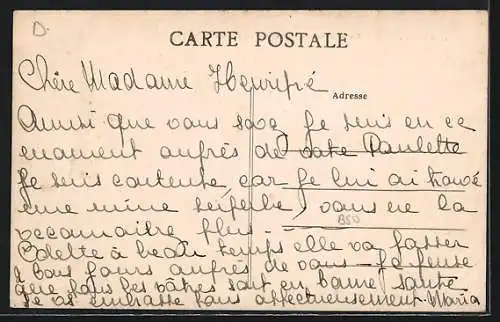 D.
CARTE POSTALE
Chère Madame Henripé
Adresse
Ainsi que vous save Je suis en ce
moment auprés de vote Paulette
Je suis contente car Je lui ai trouvé
une mine superbe, vous ne la
reconnaitre plus.
Odette à beau temps elle va passer
2 bons jours auprés de vous Je pense
que tous les vôtres sont en bonne santé
Je vs embrasse tous affectueusement. Maria